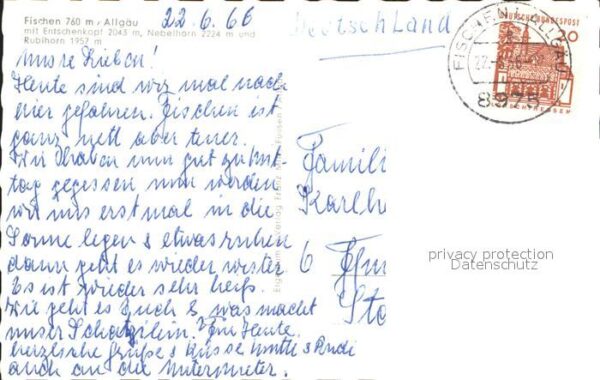 Fischen 760 m, Allgäu
mit Entschenkopf 2043 m, Nebelhorn 2224 m und
Rubihorn 1957 m
22.6.66
Deutschland
Unsre Lieben!
Heute sind wir mal nach
hier gefahren. Fischen ist
ganz nett aber teuer.
Wir haben nun gut zu Mit-
tag gegessen nun werden
wir uns erst mal in die
Sonne legen & etwas ruhen
dann geht es wieder weiter
Es ist wieder sehr heiß.
Wie geht es Euch & was macht
unser Schatzilein. Für Heute
herzliche Grüße & Küsse Mutti & Rudi
auch an die Untermieter.
Famili
Karlh
6
Sto
FISCHEN ALLGÄU
8975
DEUTSCHE BUNDESPOST
20
privacy protection
Datenschutz